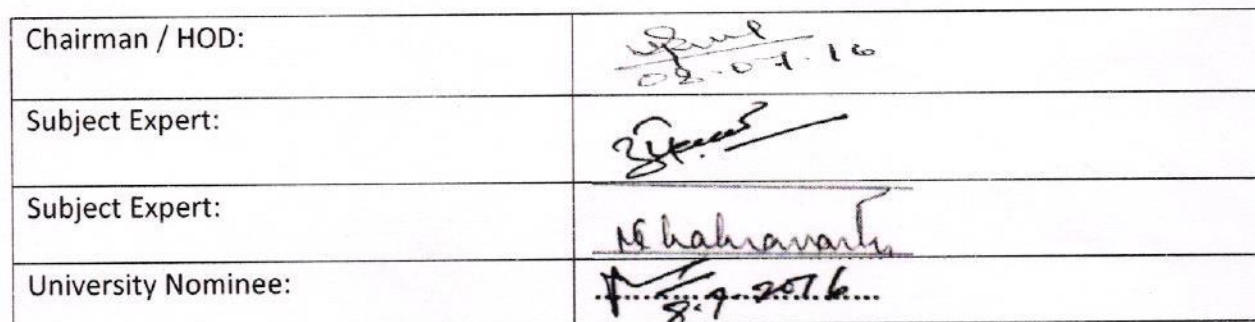 Chairman / HOD:
08.07.16
Subject Expert:
Subject Expert:
NChakravarty
University Nominee:
8.7.2016